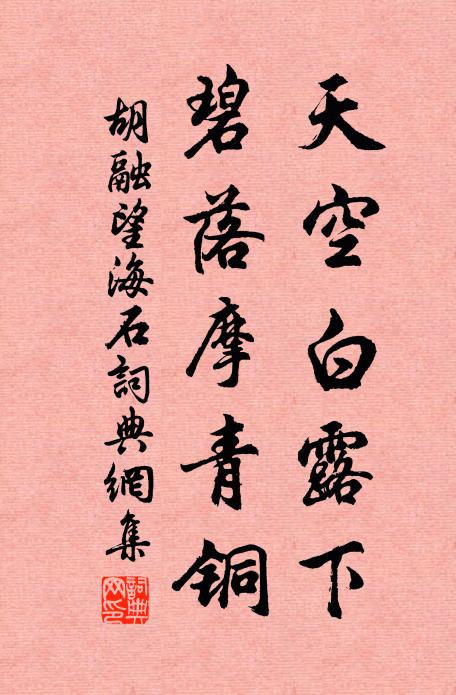 天空白露下
碧落摩青铜
胡融望海石詞典網集
詞典
网印